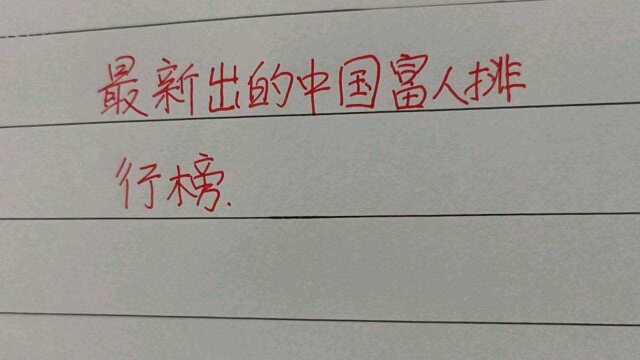 最新出的中国富人排
行榜.